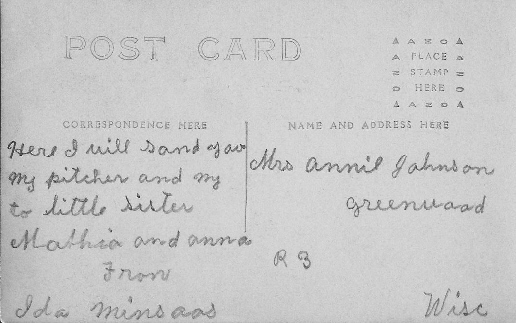 POST CARD
AZOA
PLACE
STAMP
HERE
AZOA
CORRESPONDENCE HERE
NAME AND ADDRESS HERE
Here I will sand you
my pitcher and my
to little sister
Mathia and anna
From
Ida minsaas
Mrs annie Johnson
Greenwood
R 3
Wisc